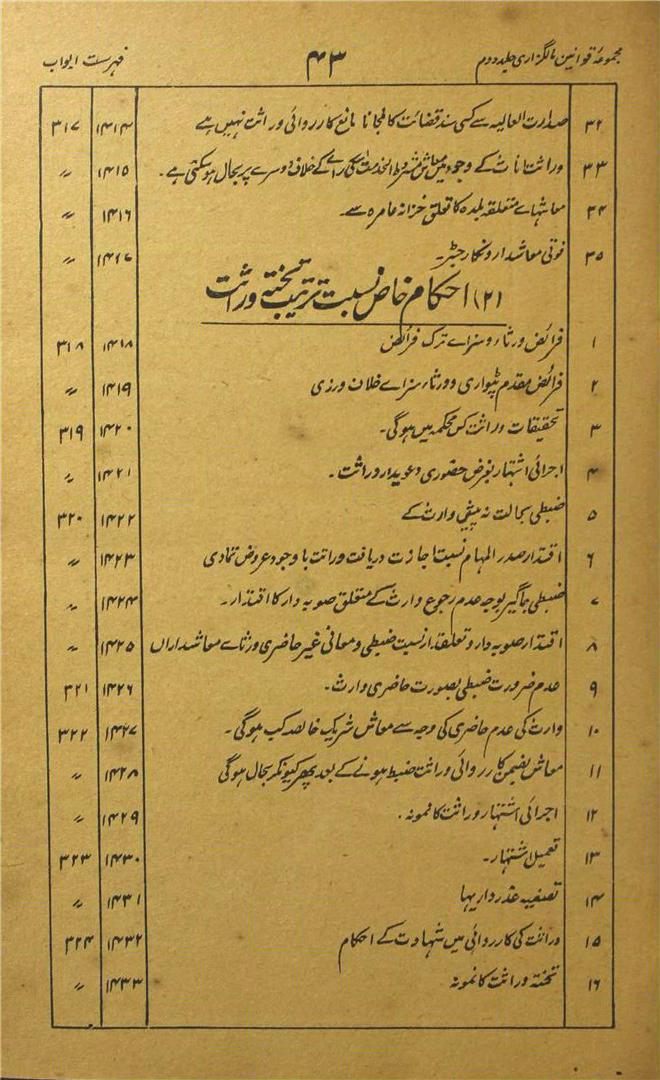 مجموعۂ قوانین مالگزاری جلد دوم ۴۳ فہرست ابواب
۳۲ صدارت العالیہ سے کسی سند قضائت کا ملجانا مانع کارروائی وراثت نہیں ہے ۱۴۱۴ ۳۱۷
۳۳ وراثتاناث کے وجوہ میں معاش مشروط الخدمت کی رائے کے خلاف دوسرے پر بحال ہوسکتی ہے۔ ۱۴۱۵ 〃
۳۴ معاشہائے متعلقہ بلدہ کا تعلق خزانہ عامرہ سے۔ ۱۴۱۶ 〃
۳۵ فوتی معاشدار ونکا رجسٹر۔ ۱۴۱۷ 〃
(۲) احکام خاص نسبت ترتیب تختہ وراثت
۱ فرائض ورثاء وسزاے ترک فرائض ۱۴۱۸ ۳۱۸
۲ فرائض مقدم پٹیواری وورثاء سزاے خلاف ورزی ۱۴۱۹ 〃
۳ تحقیقات وراثت کس محکمہ میں ہوگی۔ ۱۴۲۰ ۳۱۹
۴ اجرائی اشتہار بغرض حضوری دعویدار وراثت۔ ۱۴۲۱ 〃
۵ ضبطی بحالت نہ پیشی وارث کے ۱۴۲۲ ۳۲۰
۶ اقتدار صدر المہام نسبت اجازت دریافت وراثت باوجود عروض تمادی ۱۴۲۳ 〃
۷ ضبطی جاگیر بوجہ عدم رجوع وارث کے متعلق صوبہ دار کا اقتدار۔ ۱۴۲۴ 〃
۸ اقتدار صوبہ دار و تعلقدار نسبت ضبطی ومعافی غیر حاضری ورثاے معاشداران ۱۴۲۵ 〃
۹ عدم ضرورت ضبطی بصورت حاضری وارث۔ ۱۴۲۶ ۳۲۱
۱۰ وارث کی عدم حاضری کی وجہ سے معاش شریک خالصہ کب ہوگی۔ ۱۴۲۷ ۳۲۲
۱۱ معاش بضمن کارروائی وراثت ضبط ہونے کے بعد پھر کیونکر بحال ہوگی ۱۴۲۸ 〃
۱۲ اجرائی اشتہار وراثت کا نمونہ۔ ۱۴۲۹ 〃
۱۳ تعمیل اشتہار۔ ۱۴۳۰ ۳۲۳
۱۴ تصفیہ عذرداریہا ۱۴۳۱ 〃
۱۵ وراثت کی کارروائی میں شہادت کے احکام ۱۴۳۲ ۳۲۴
۱۶ تختہ وراثت کا نمونہ ۱۴۳۳ 〃